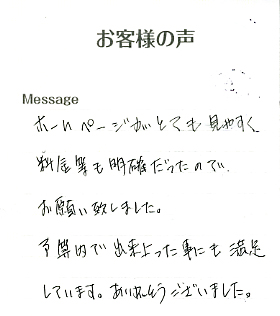 お客様の声
Message
ホームページがとても見やすく
料金等も明確だったので
お願い致しました。
予算内で出来上った事にも満足
しています。ありがとうございました。